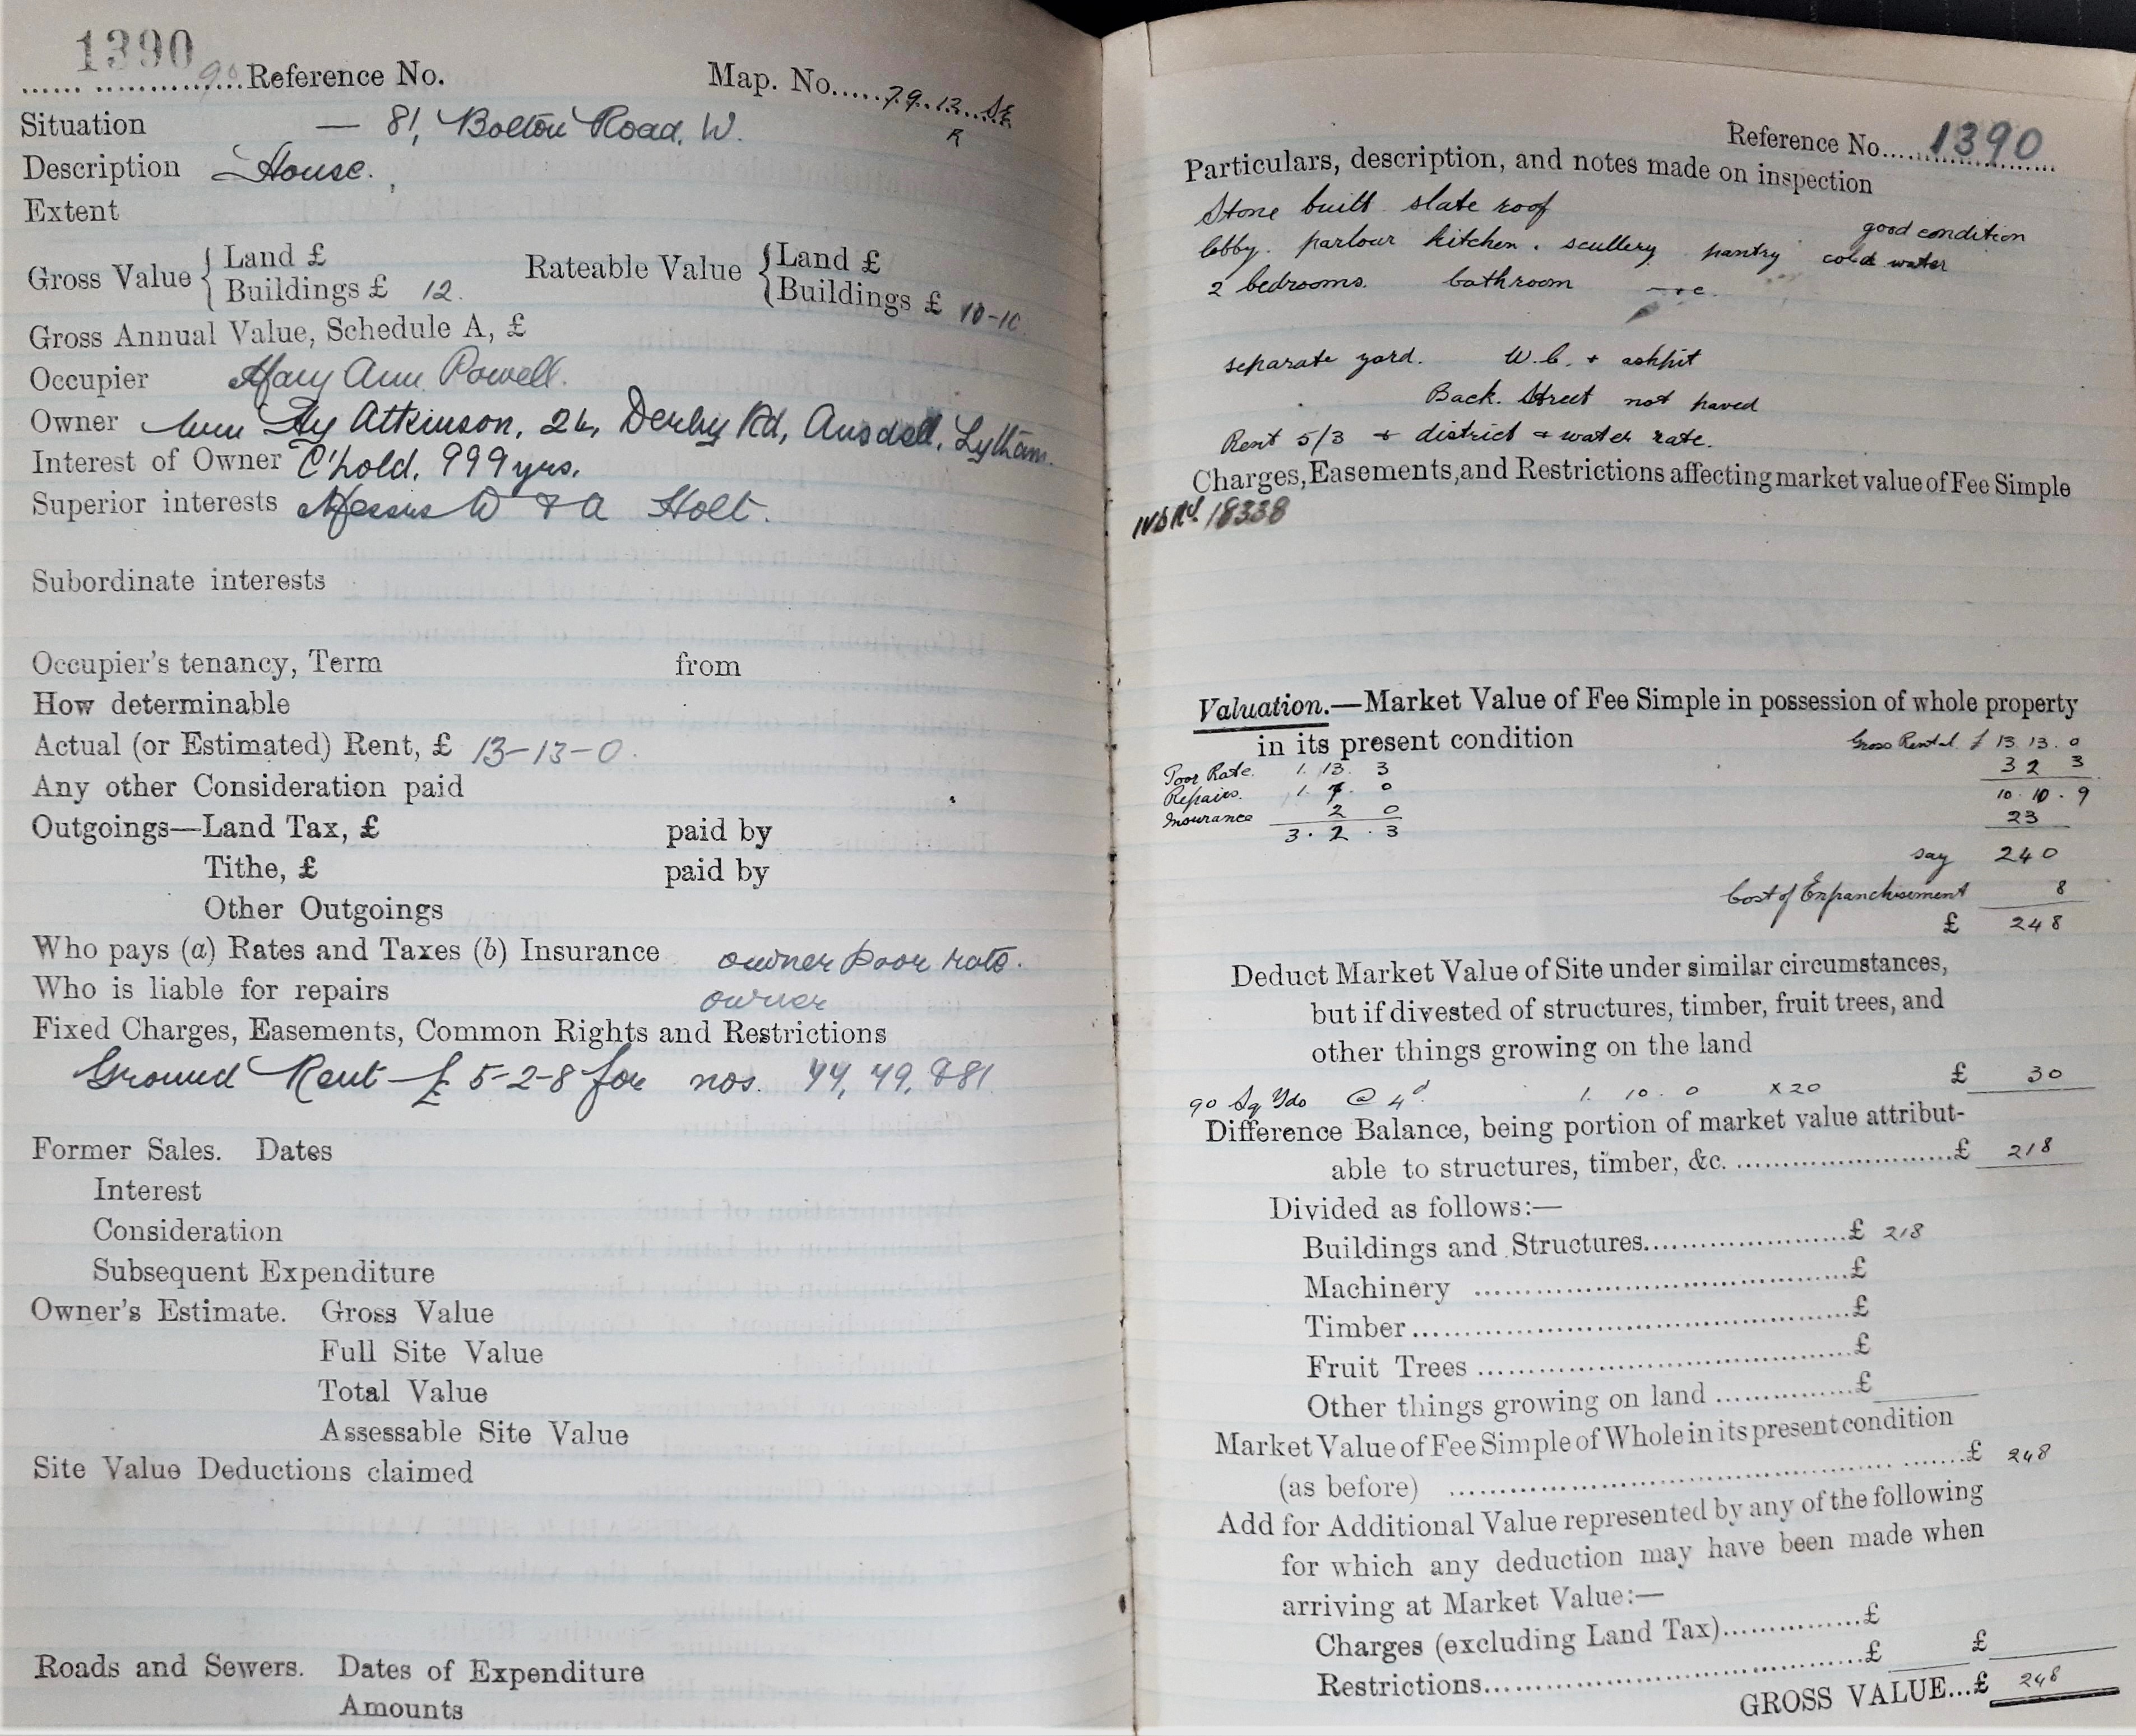 1390
Reference No. Map. No. 79.13. SE
R
Situation — 81, Bolton Road, W.
Description House.
Extent
Gross Value { Land £ Rateable Value { Land £
Buildings £ 12. Buildings £ 10-10
Gross Annual Value, Schedule A, £
Occupier Mary Ann Powell.
Owner Wm Hy Atkinson, 26, Derby Rd, Ansdell, Lytham.
Interest of Owner C'hold, 999 yrs.
Superior interests Messrs W & A Holt.
Subordinate interests
Occupier's tenancy, Term from
How determinable
Actual (or Estimated) Rent, £ 13-13-0.
Any other Consideration paid
Outgoings—Land Tax, £ paid by
Tithe, £ paid by
Other Outgoings
Who pays (a) Rates and Taxes (b) Insurance owner Poor rate.
Who is liable for repairs owner
Fixed Charges, Easements, Common Rights and Restrictions
Ground Rent £5-2-8 for nos. 81
Former Sales. Dates
Interest
Consideration
Subsequent Expenditure
Owner's Estimate. Gross Value
Full Site Value
Total Value
Assessable Site Value
Site Value Deductions claimed
Roads and Sewers. Dates of Expenditure
Amounts
Reference No. 1390
Particulars, description, and notes made on inspection
Stone built slate roof
good condition
lobby. parlour kitchen. scullery pantry cold water
2 bedrooms. bathroom
separate yard. W.C. + ashpit
Back. Street not paved
Rent 5/3 + district + water rate.
Charges, Easements, and Restrictions affecting market value of Fee Simple
18338
Valuation.—Market Value of Fee Simple in possession of whole property
in its present condition Gross Rental £ 13. 13. 0
Poor Rate. 1. 13. 3 3 2 3
Repairs. 1. 7. 0 10. 10. 9
Insurance 2 0 23
3. 2. 3
say 240
Cost of Enfranchisement 8
£ 248
Deduct Market Value of Site under similar circumstances,
but if divested of structures, timber, fruit trees, and
other things growing on the land
£ 30
90 Sq Yds @ 4d. 1. 10. 0 x 20
Difference Balance, being portion of market value attribut-
able to structures, timber, &c. £ 218
Divided as follows:—
Buildings and Structures £ 218
Machinery £
Timber £
Fruit Trees £
Other things growing on land £
Market Value of Fee Simple of Whole in its present condition
(as before) £ 248
Add for Additional Value represented by any of the following
for which any deduction may have been made when
arriving at Market Value:—
Charges (excluding Land Tax) £
Restrictions £ £
GROSS VALUE...£ 248